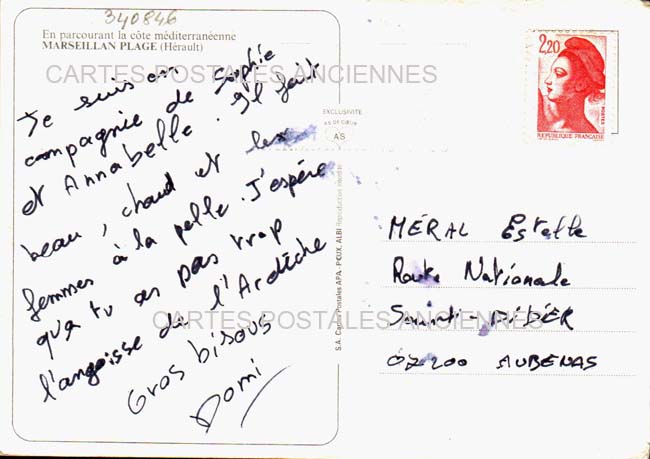 340846
En parcourant la côte méditerranéenne
MARSEILLAN PLAGE (Hérault)
CARTES POSTALES ANCIENNES
Je suis en
compagnie de Sophie
et Annabelle. Il fait
beau, chaud et les
femmes à la pelle. J'espère
que tu as pas trop
l'angoisse de l'Ardèche
Gros bisous
Domi
EXCLUSIVITE
AS DE CŒUR
AS
S.A. Cartes Postales APA-POUX, ALBI Reproduction interdite
2,20
POSTES
REPUBLIQUE FRANÇAISE
MÉRAL Estelle
Route Nationale
Saint-DIDIER
07200 AUBENAS
CARTES POSTALES ANCIENNES